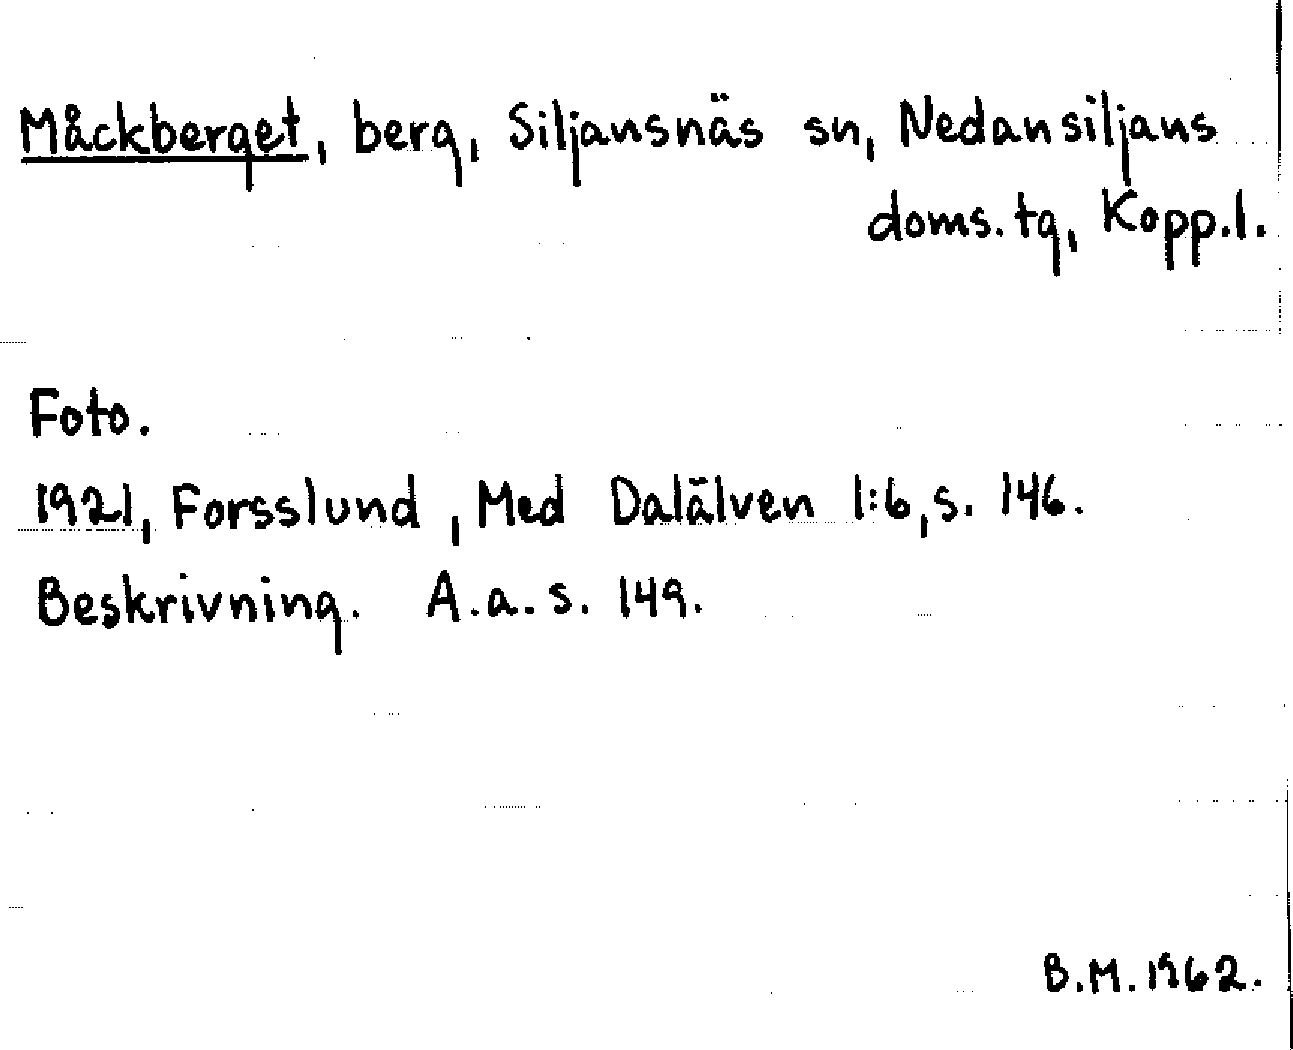 Måckberget, berg, Siljansnäs sn, Nedansiljans
doms.tg, Kopp.l.
Foto.
1921, Forsslund, Med Dalälven 1:6, s. 146.
Beskrivning. A.a.s. 149.
B.M. 1962.